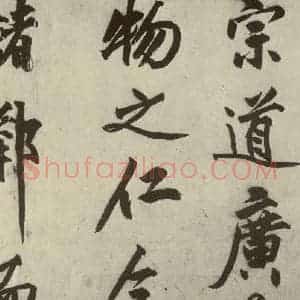 宗道廣
物之仁
諸鄣
Shufaziliao.COM